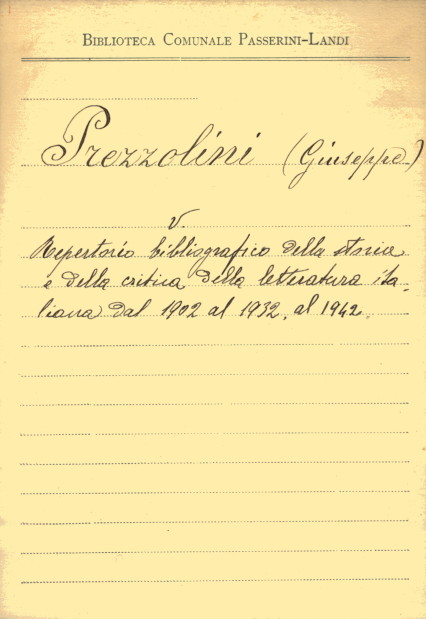 BIBLIOTECA COMUNALE PASSERINI-LANDI
Prezzolini (Giuseppe)
v.
Repertorio bibliografico della storia
e della critica della letteratura ita-
liana dal 1902 al 1932, al 1942.